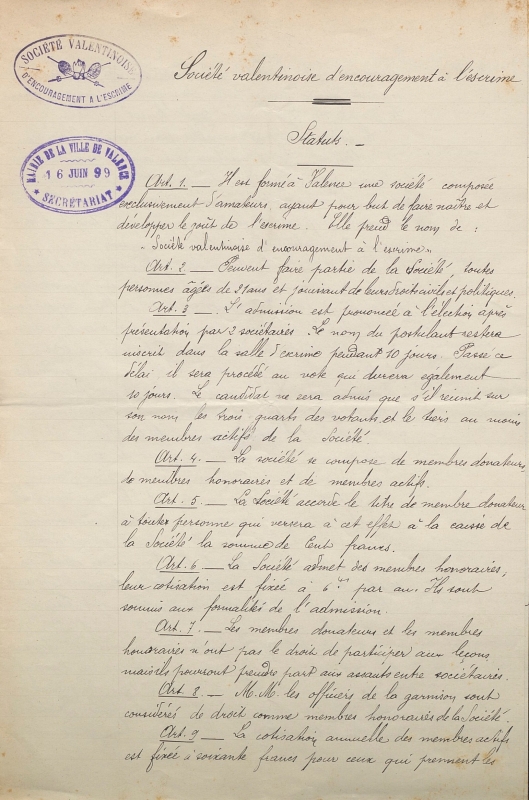 SOCIÉTÉ VALENTINOISE
D'ENCOURAGEMENT A L'ESCRIME
Société valentinoise d'encouragement à l'escrime
MAIRIE DE LA VILLE DE VALENCE
16 JUIN 99
SECRÉTARIAT
Statuts. —
Art. 1. — Il est formé à Valence une société composée
exclusivement d'amateurs, ayant pour but de faire naître et
développer le goût de l'escrime. Elle prend le nom de :
"Société valentinoise d'encouragement à l'escrime"
Art. 2 — Peuvent faire partie de la Société, toutes
personnes âgées de 21 ans et jouissant de leurs droits civils et politiques.
Art. 3 — L'admission est prononcée à l'élection après
présentation par 2 sociétaires. Le nom du postulant restera
inscrit dans la salle d'escrime pendant 10 jours. Passé ce
délai il sera procédé au vote qui durera également
10 jours. Le candidat ne sera admis que s'il réunit sur
son nom les trois quarts des votants et le tiers au moins
des membres actifs de la Société.
Art. 4. — La société se compose de membres donateurs,
de membres honoraires et de membres actifs.
Art. 5. — La Société accorde le titre de membre donateur
à toute personne qui versera à cet effet à la caisse de
la Société la somme de Cent francs.
Art. 6 — La Société admet des membres honoraires;
leur cotisation est fixée à 6 frs par an. Ils sont
soumis aux formalités de l'admission.
Art. 7. — Les membres donateurs et les membres
honoraires n'ont pas le droit de participer aux leçons,
mais ils pourront prendre part aux assauts entre sociétaires.
Art. 8. — M.M. les officiers de la garnison sont
considérés de droit comme membres honoraires de la Société.
Art. 9 — La cotisation annuelle des membres actifs
est fixée à soixante francs pour ceux qui prennent les